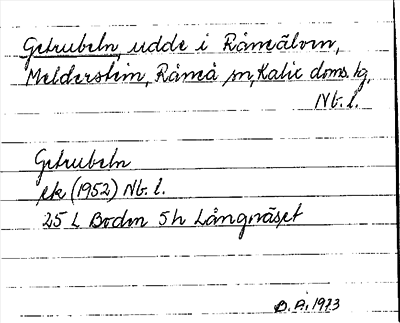 Getrubeln, udde i Råneälven,
Melderstein, Råneå sn, Kalix doms. lg,
Nb. l.
Getrubeln
ek (1952) Nb. l.
25 L Boden 5 h Långnäset
B. Å. 1973